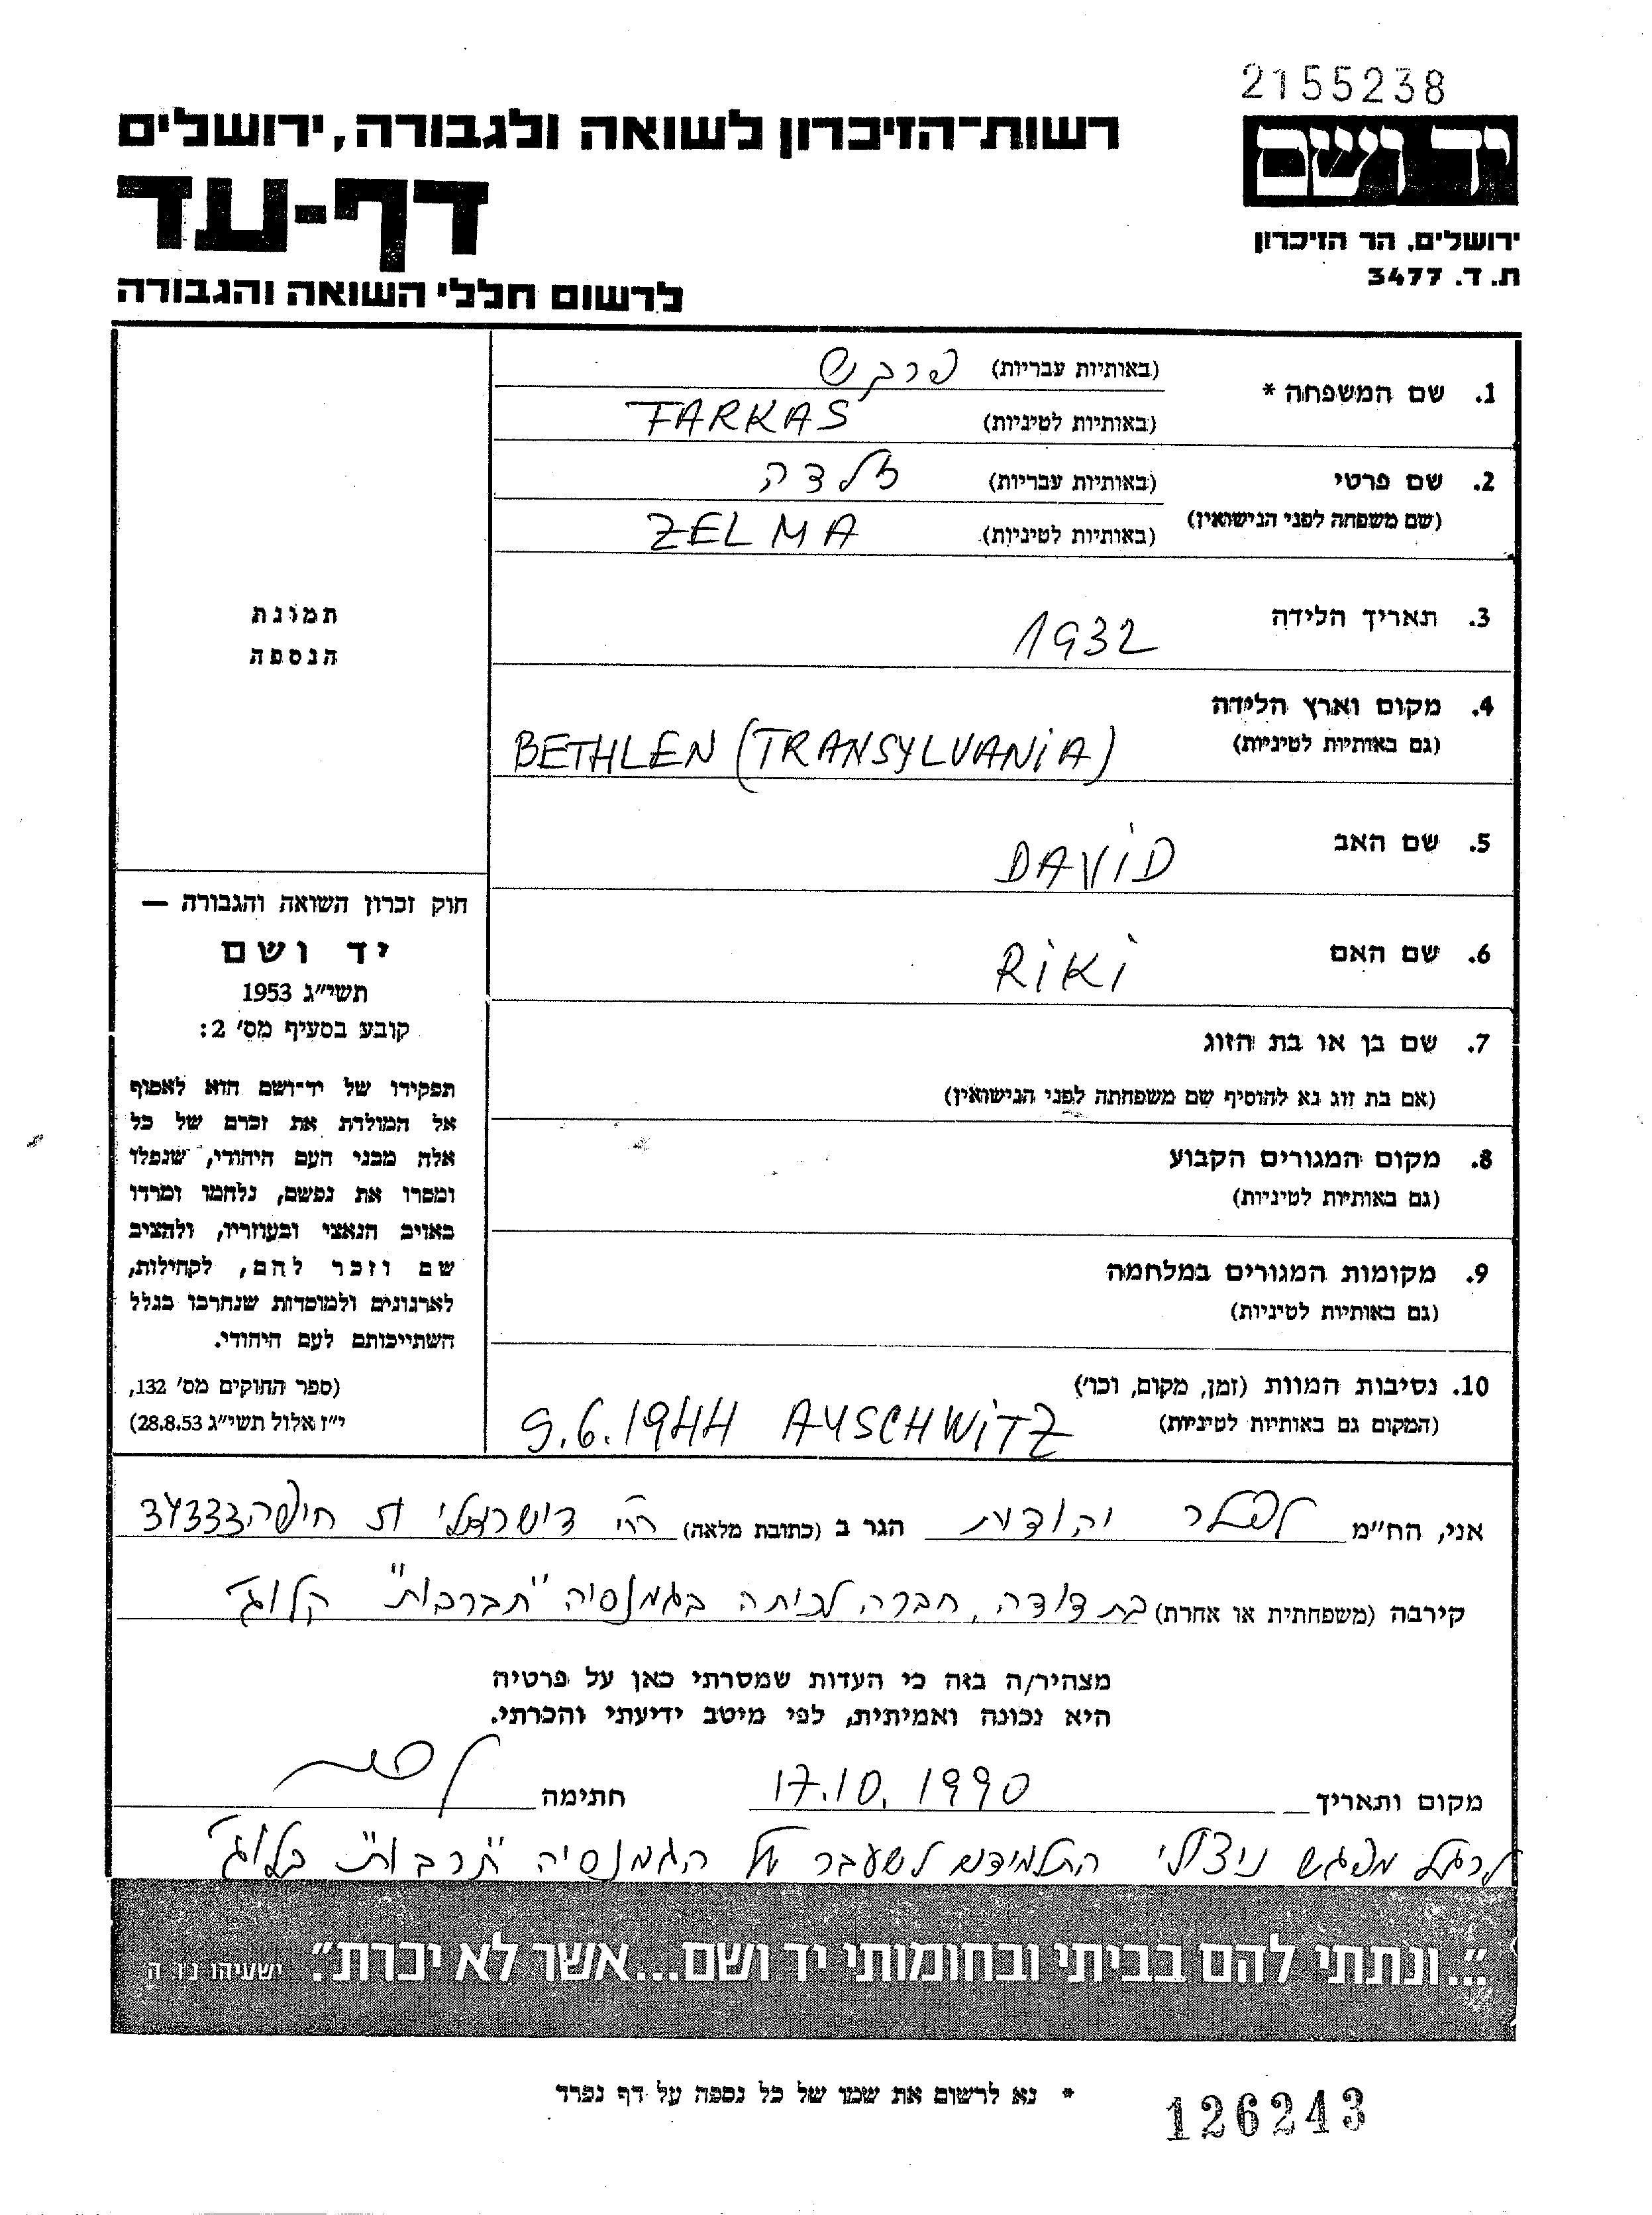 2155238
יד ושם
ירושלים, הר הזיכרון
ת. ד. 3477
רשות־הזיכרון לשואה ולגבורה, ירושלים
דף-עד
לרשום חללי השואה והגבורה
1. שם המשפחה *
(באותיות עבריות) פרקש
(באותיות לטיניות) FARKAS
2. שם פרטי
(שם משפחה לפני הנישואין)
(באותיות עבריות) זלדה
(באותיות לטיניות) ZELMA
3. תאריך הלידה 1932
4. מקום וארץ הלידה
(גם באותיות לטיניות) BETHLEN (TRANSYLVANIA)
5. שם האב DAVID
6. שם האם RIKI
7. שם בן או בת הזוג
(אם בת זוג נא להוסיף שם משפחתה לפני הנישואין)
8. מקום המגורים הקבוע
(גם באותיות לטיניות)
9. מקומות המגורים במלחמה
(גם באותיות לטיניות)
10. נסיבות המוות (זמן, מקום, וכו')
(המקום גם באותיות לטיניות) 9.6.1944 AUSCHWITZ
תמונת
הנספה
חוק זכרון השואה והגבורה —
יד ושם
תשי"ג 1953
קובע בסעיף מס' 2:
תפקידו של יד־ושם הוא לאסוף
אל המולדת את זכרם של כל
אלה מבני העם היהודי, שנפלו
ומסרו את נפשם, נלחמו ומרדו
באויב הנאצי ובעוזריו, ולהציב
שם וזכר להם, לקהילות,
לארגונים ולמוסדות שנחרבו בגלל
השתייכותם לעם היהודי.
(ספר החוקים מס' 132,
י"ז אלול תשי"ג 28.8.53)
אני, הח"מ יהודית הגר ב (כתובת מלאה) דישראלי חיפה 34333
קירבה (משפחתית או אחרת) בת דודה, חברה לכיתה בגמנסיה "תברבות" קלוג'
מצהיר/ה בזה כי העדות שמסרתי כאן על פרטיה
היא נכונה ואמיתית, לפי מיטב ידיעתי והכרתי.
מקום ותאריך 17.10.1990 חתימה
לרגל מפגש ניצולי התלמידים לשעבר של הגמנסיה "תרבות" בקלוג'
"...ונתתי להם בביתי ובחומותי יד ושם...אשר לא יכרת". ישעיהו נ"ו ה
* נא לרשום את שמו של כל נספה על דף נפרד
126243